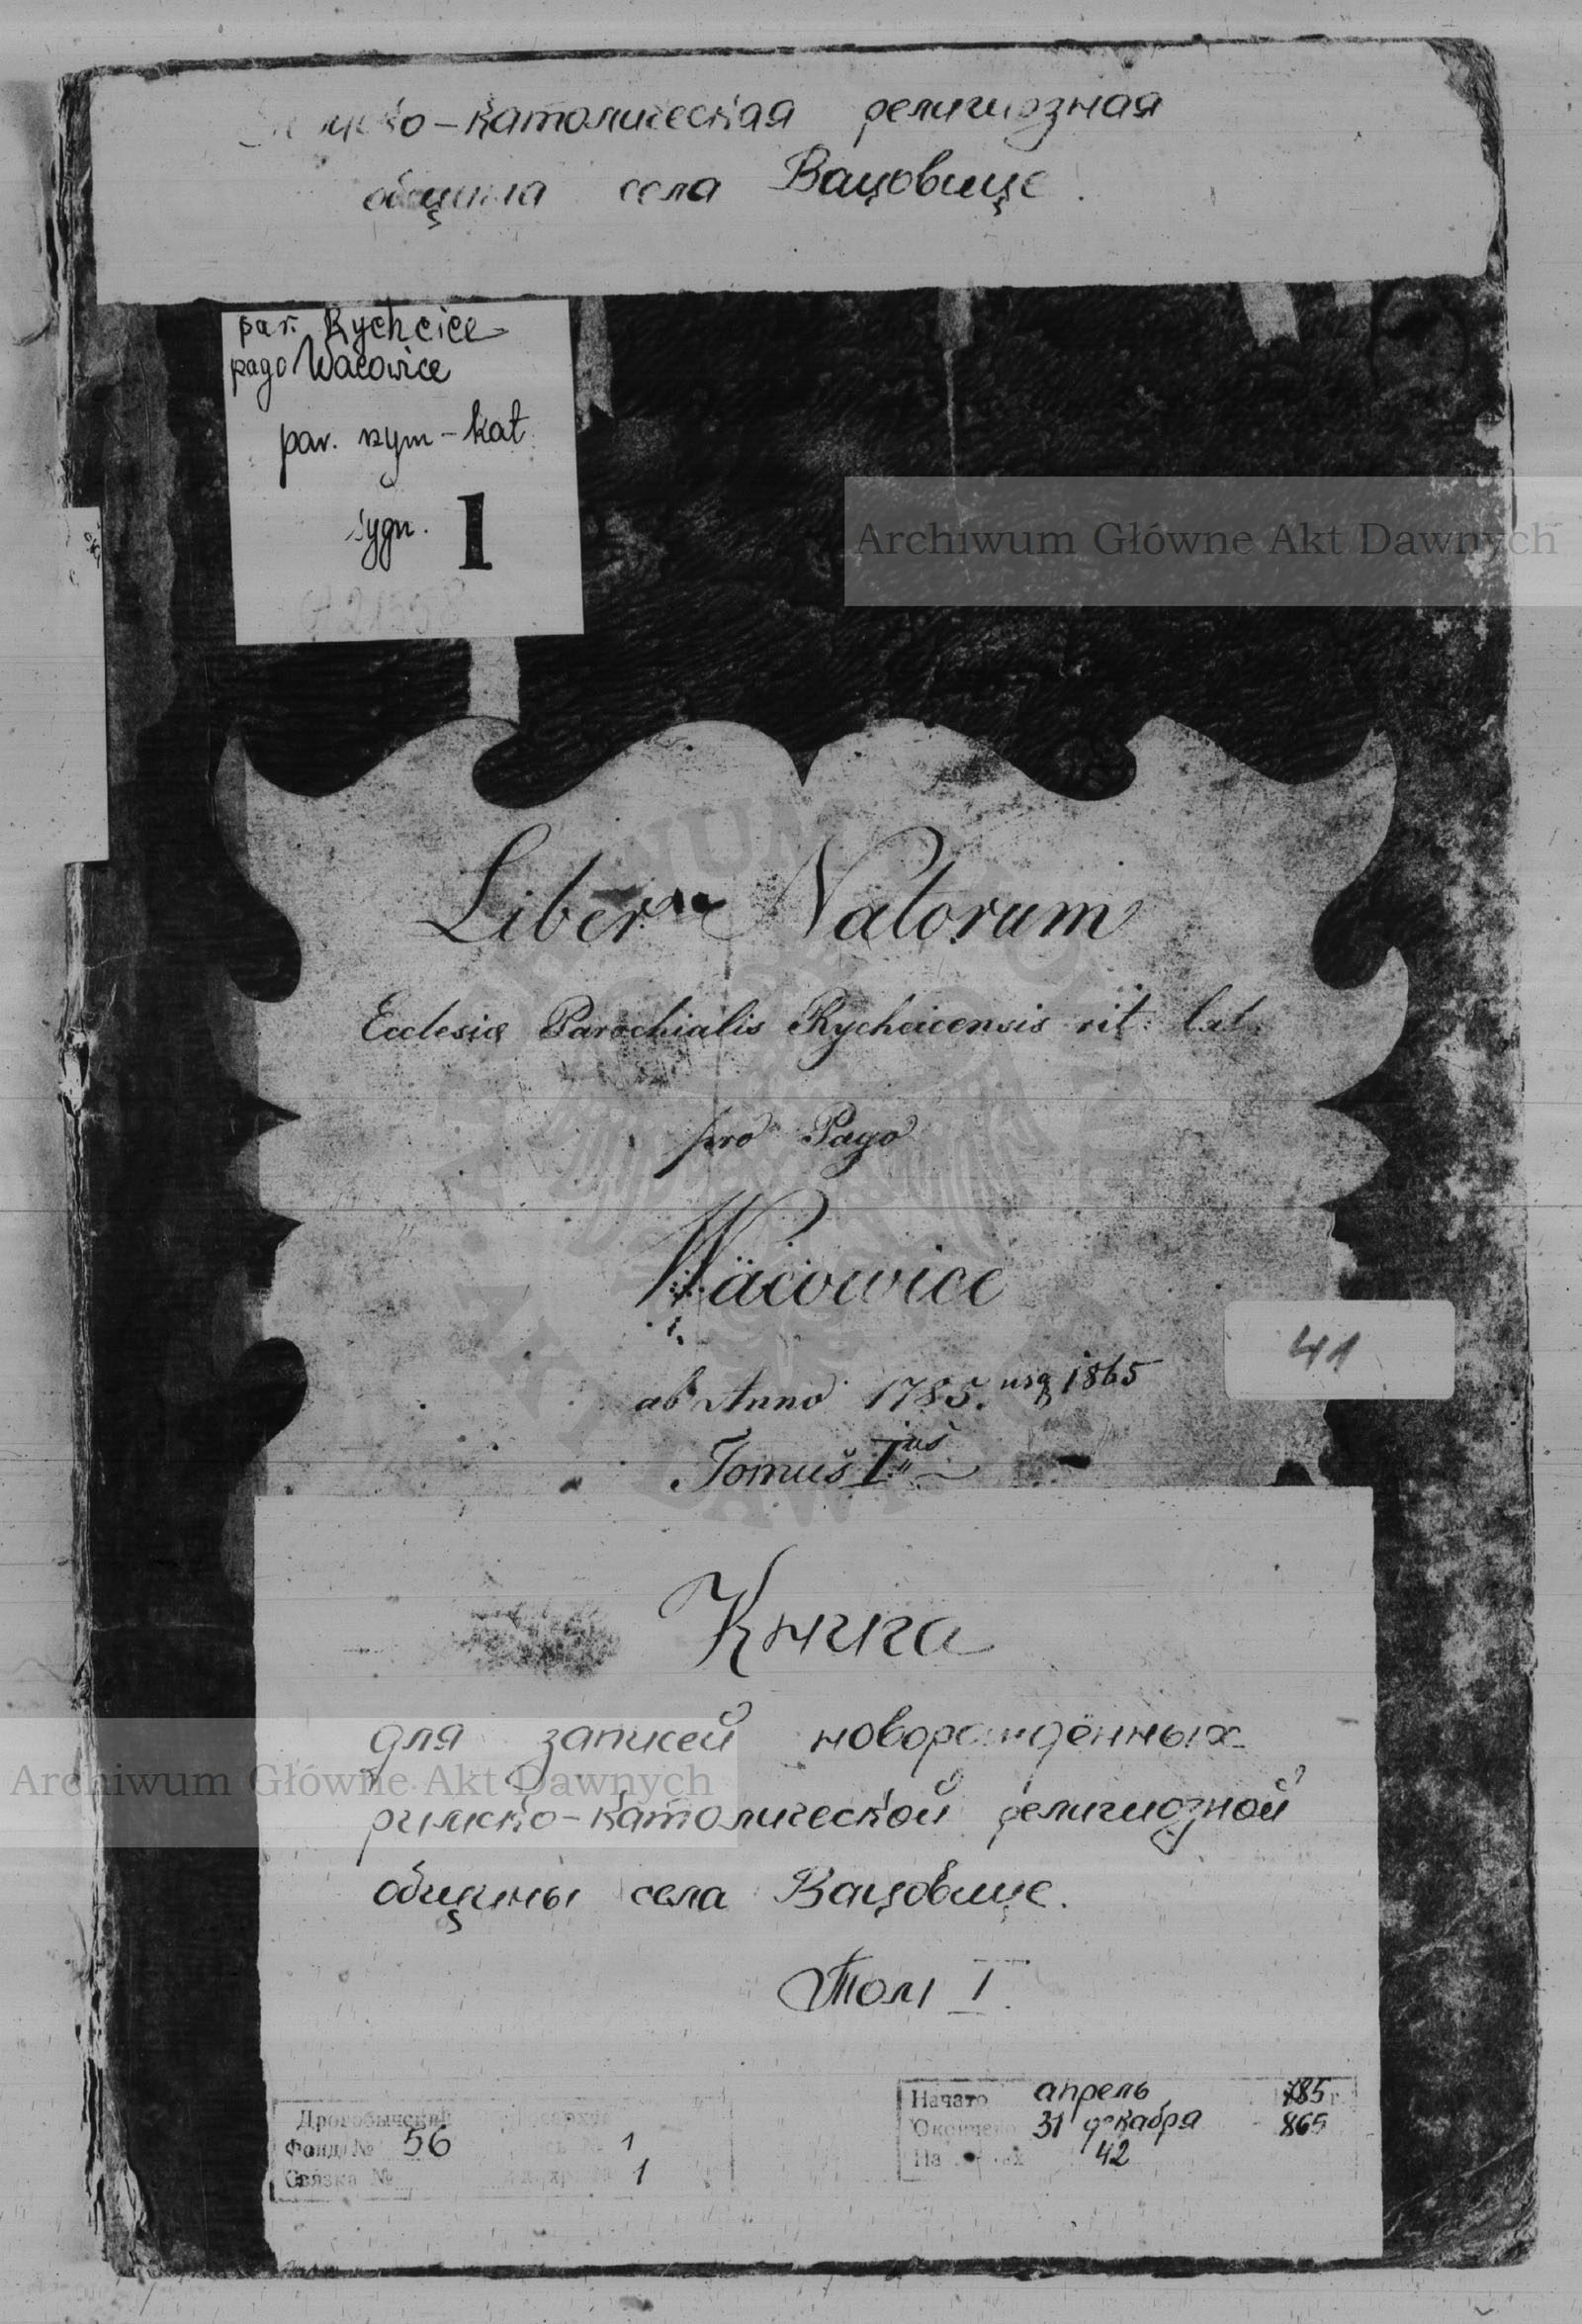 католическая религиозная
община села Вацовице.
par. Rychcice
pago Wacowice
par. rzym-kat.
sygn. 1
Archiwum Główne Akt Dawnych
Liber Natorum
Ecclesiæ Parochialis Rychcicensis rit: lat:
pro Pago
Wacowice
ab Anno 1785. usq 1865
41
Tomus I.us
Книга
для записей новорождённых
Archiwum Główne Akt Dawnych
римско-католической религиозной
общины села Вацовице.
Том I.
Начато апрель 785 г.
Дрогобычский
Окончено 31 декабря 865
Фонд № 56 1
На 42
Связка № 1